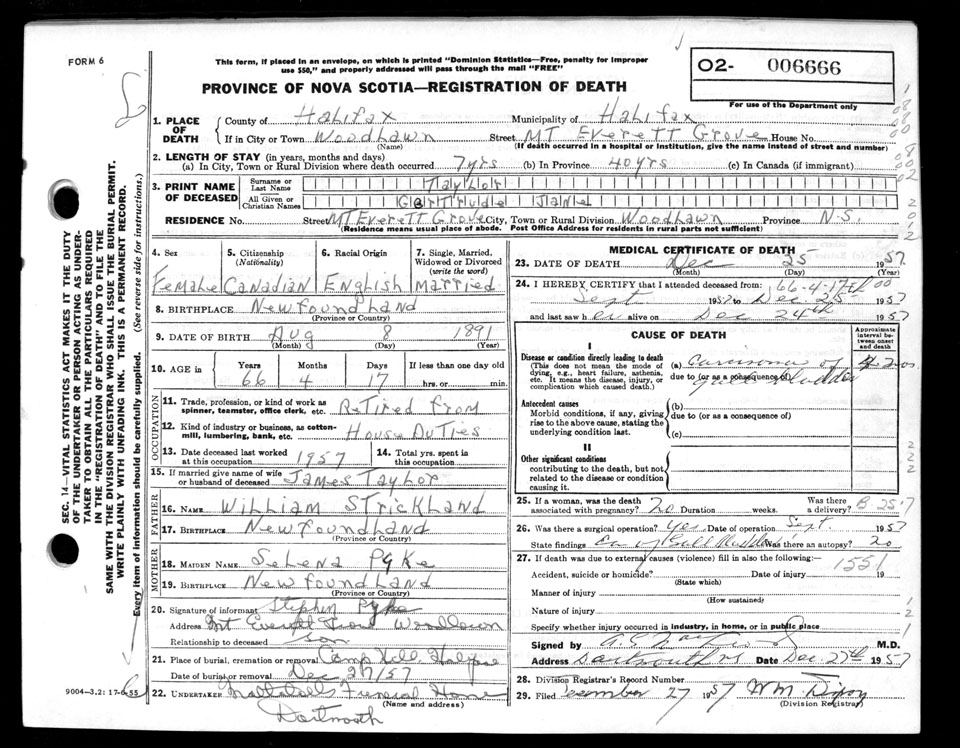 FORM 6
This form, if placed in an envelope, on which is printed "Dominion Statistics—Free, penalty for improper
use $50," and properly addressed will pass through the mail "FREE"
PROVINCE OF NOVA SCOTIA—REGISTRATION OF DEATH
02- 006666
For use of the Department only
1. PLACE OF DEATH
County of Halifax Municipality of Halifax
If in City or Town Woodlawn Street MT Everett Grove House No.
(Name) (If death occurred in a hospital or institution, give the name instead of street and number)
2. LENGTH OF STAY (in years, months and days)
(a) In City, Town or Rural Division where death occurred 7yrs (b) In Province 40yrs (c) In Canada (if immigrant)
3. PRINT NAME OF DECEASED
Surname or Last Name Taylor
All Given or Christian Names Gertrude Jane
RESIDENCE No. Street MT Everett Grove City, Town or Rural Division Woodlawn Province N.S.
(Residence means usual place of abode. Post Office Address for residents in rural parts not sufficient)
4. Sex 5. Citizenship (Nationality) 6. Racial Origin 7. Single, Married, Widowed or Divorced (write the word)
Female Canadian English Married
8. BIRTHPLACE Newfoundland
(Province or Country)
9. DATE OF BIRTH Aug 8 1891
(Month) (Day) (Year)
10. AGE in Years Months Days If less than one day old
66 4 17 hrs. or min.
OCCUPATION
11. Trade, profession, or kind of work as spinner, teamster, office clerk, etc. Retired from
12. Kind of industry or business, as cotton-mill, lumbering, bank, etc. House Duties
13. Date deceased last worked at this occupation 1957 14. Total yrs. spent in this occupation
15. If married give name of wife or husband of deceased James Taylor
FATHER
16. NAME William Strickland
17. BIRTHPLACE Newfoundland
(Province or Country)
MOTHER
18. MAIDEN NAME Selena Pyke
19. BIRTHPLACE Newfoundland
(Province or Country)
20. Signature of informant Stephen Pyke
Address Mt Everett Grove Woodlawn
Relationship to deceased son
21. Place of burial, cremation or removal Camp Hill Halifax
Date of burial or removal Dec 27/57
22. UNDERTAKER Funeral Home
(Name and address)
Dartmouth
9004-3.2: 17-6-55
MEDICAL CERTIFICATE OF DEATH
23. DATE OF DEATH Dec 25 1957
(Month) (Day)
24. I HEREBY CERTIFY that I attended deceased from: 66-4-17
Sept 1957 to Dec 25th 1957
and last saw her alive on Dec 24th 1957
CAUSE OF DEATH
Approximate interval between onset and death
I
Disease or condition directly leading to death
(This does not mean the mode of dying, e.g., heart failure, asthenia, etc. It means the disease, injury, or complication which caused death.)
(a) Carcinoma of
due to (or as a consequence of)
Gall Bladder
Antecedent causes
Morbid conditions, if any, giving rise to the above cause, stating the underlying condition last.
(b)
due to (or as a consequence of)
(c)
II
Other significant conditions
contributing to the death, but not related to the disease or condition causing it.
25. If a woman, was the death associated with pregnancy? no Duration weeks. Was there a delivery?
26. Was there a surgical operation? yes Date of operation Sept 1957
State findings Ca of Gall Bladder Was there an autopsy? no
27. If death was due to external causes (violence) fill in also the following:— 1551
Accident, suicide or homicide? Date of injury 19
(State which)
Manner of injury
(How sustained)
Nature of injury
Specify whether injury occurred in industry, in home, or in public place
Signed by M.D.
Address Dartmouth NS Date Dec 27th 1957
28. Division Registrar's Record Number
29. Filed December 27 1957 Wm Dixon
(Division Registrar)
SEC. 14—VITAL STATISTICS ACT MAKES IT THE DUTY
OF THE UNDERTAKER OR PERSON ACTING AS UNDER-
TAKER TO OBTAIN ALL THE PARTICULARS REQUIRED
IN THE "REGISTRATION OF DEATH" AND TO FILE THE
SAME WITH THE DIVISION REGISTRAR WHO SHALL ISSUE THE BURIAL PERMIT.
WRITE PLAINLY WITH UNFADING INK. THIS IS A PERMANENT RECORD.
Every item of information should be carefully supplied. (See reverse side for instructions.)